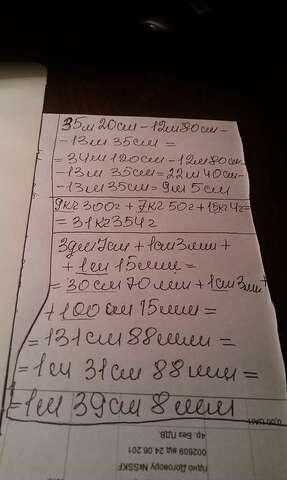 35м 20см - 12м 80см -
- 13м 35см =
= 34м 120см - 12м 80см -
- 13м 35см = 22м 40см -
- 13м 35см = 9м 5см
9кг 300г + 7кг 50г + 15кг 4г
= 31кг 354г
3дм 7см + 1см 3мм +
+ 1м 15мм =
= 30см 70мм + 1см 3мм +
+ 100см 15мм =
= 131см 88мм =
= 1м 31см 88мм =
= 1м 39см 8мм
4р. Без ПДВ.
002609 від 24.06.201
гідно Договору №SSKF